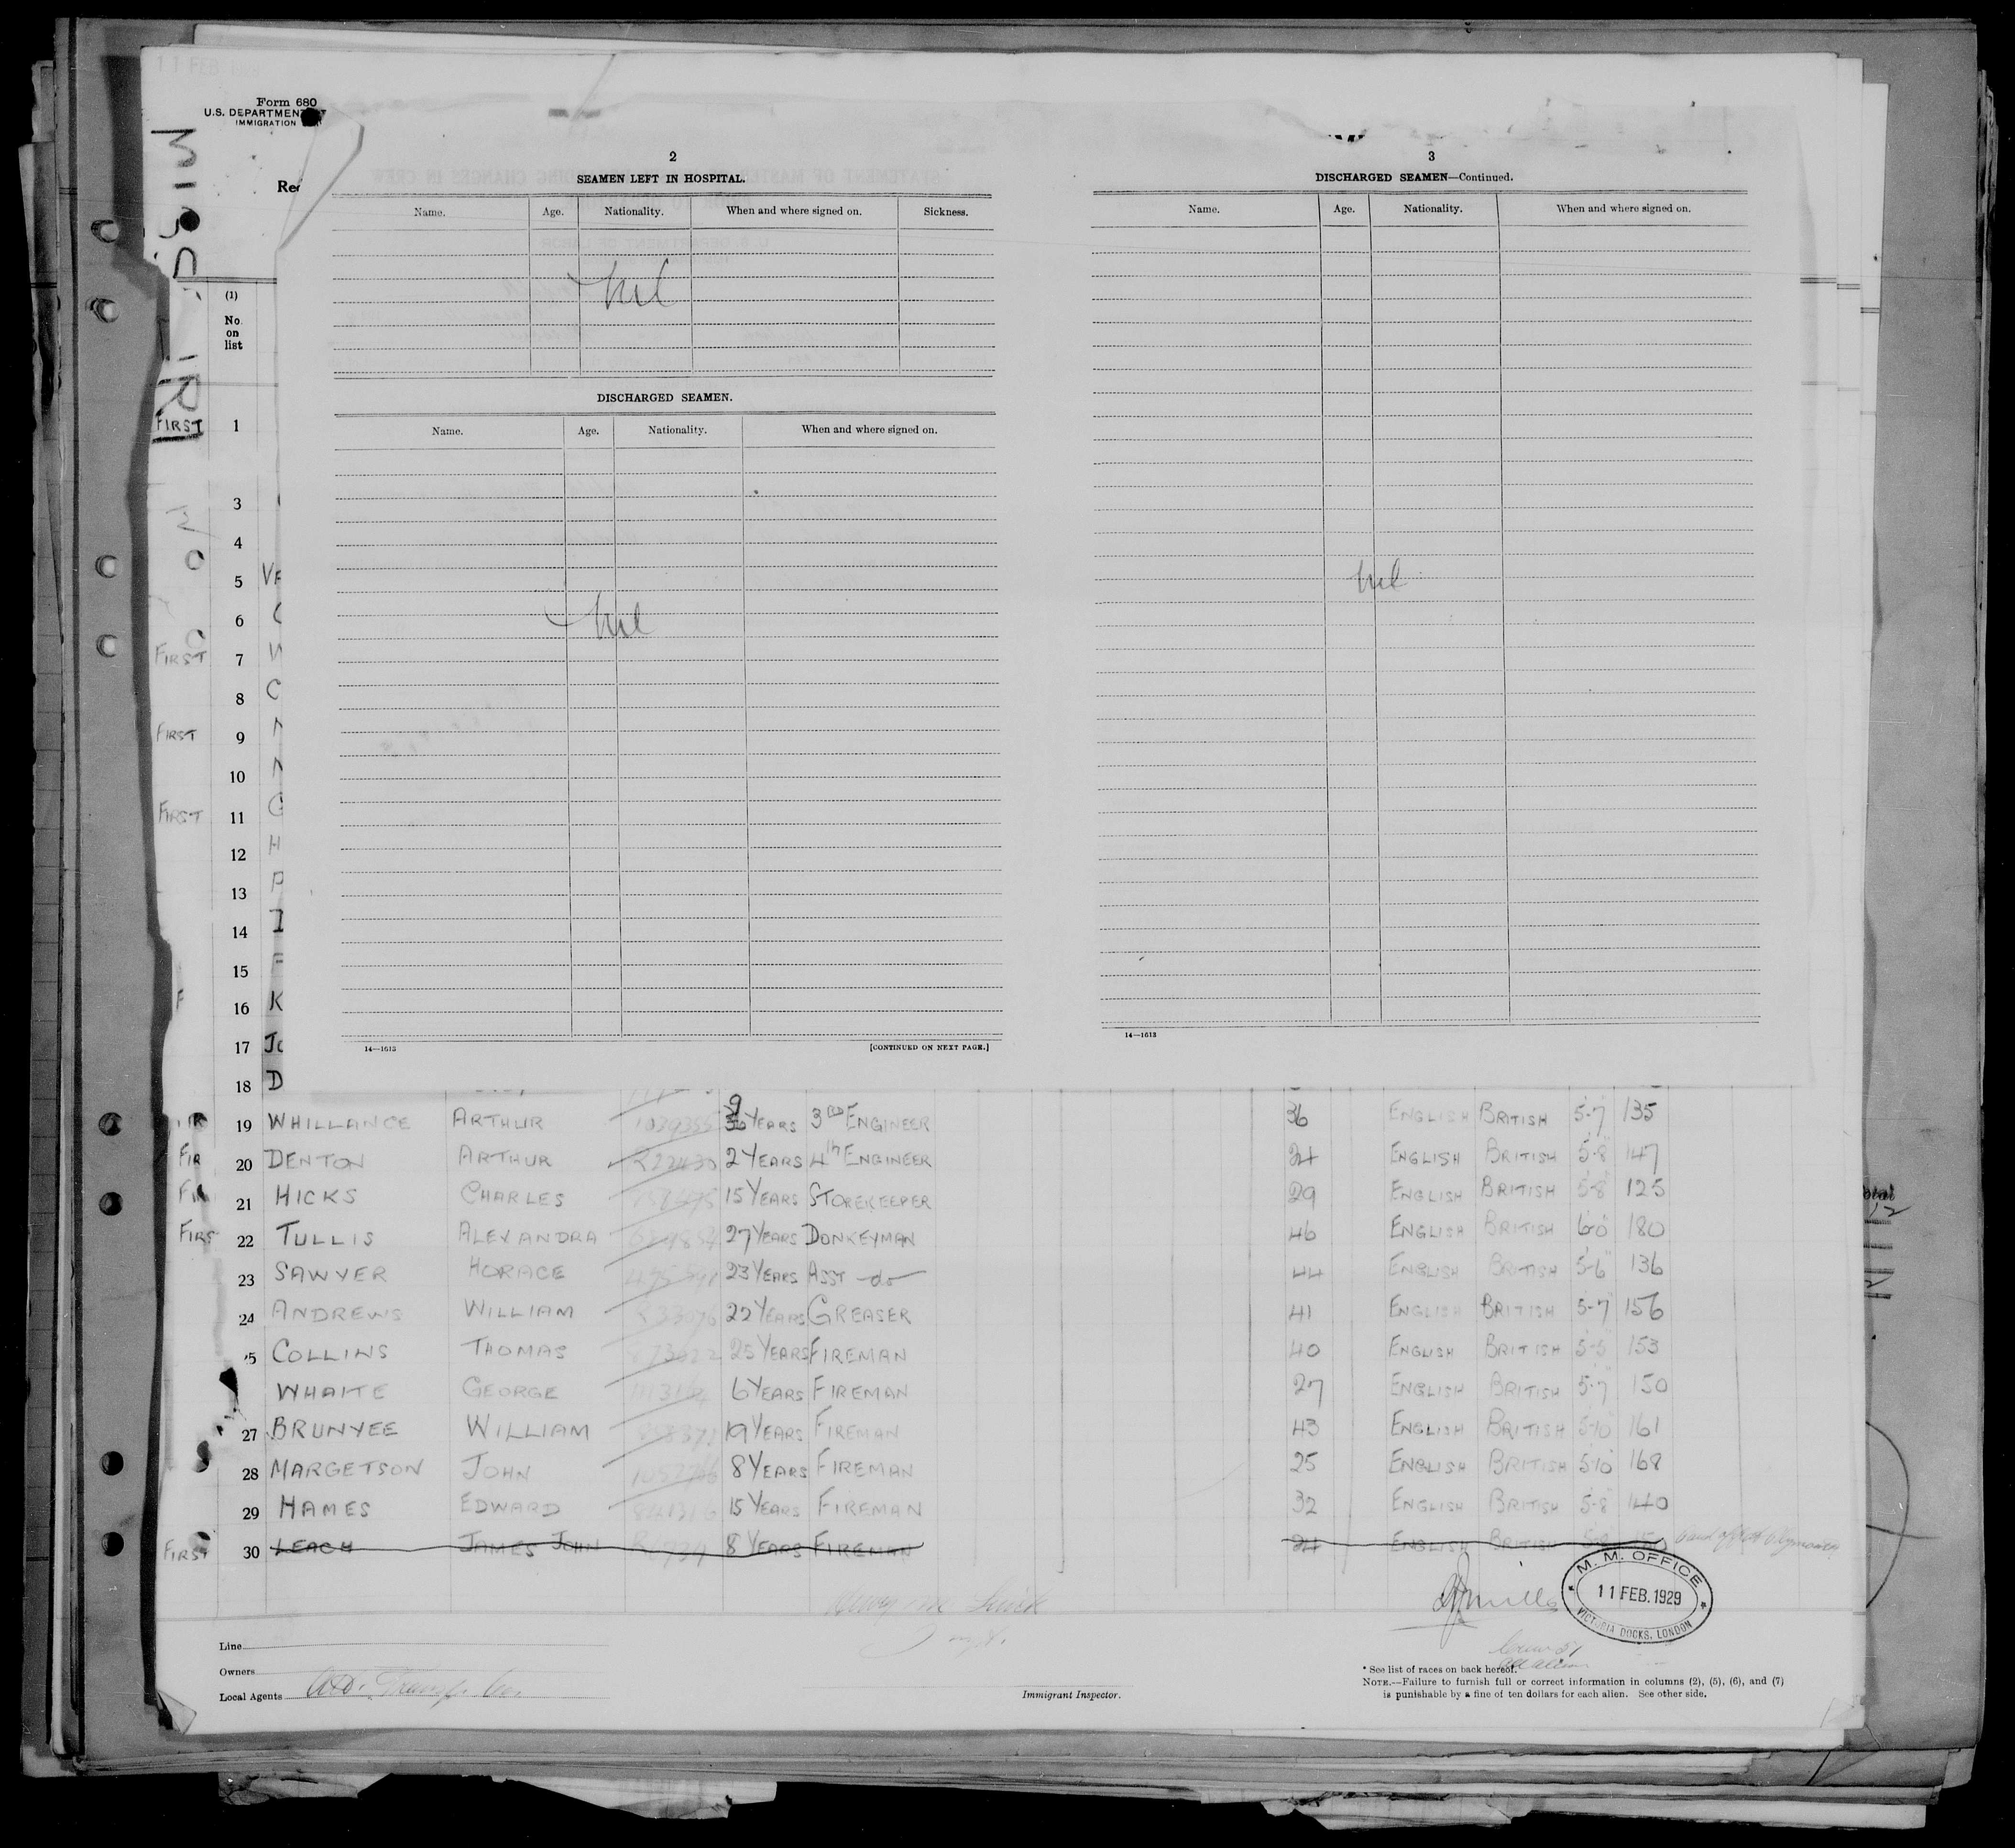 11 FEB 1929
Form 680
U.S. DEPARTMEN
IMMIGRATION
Re
2
SEAMEN LEFT IN HOSPITAL.
Name. Age. Nationality. When and where signed on. Sickness.
nil
DISCHARGED SEAMEN.
Name. Age. Nationality. When and where signed on.
nil
14—1613 [CONTINUED ON NEXT PAGE.]
3
DISCHARGED SEAMEN—Continued.
Name. Age. Nationality. When and where signed on.
nil
14—1613
(1)
No.
on
list
FIRST 1
3
4
5
6
FIRST 7 W
8 C
FIRST 9
10
FIRST 11
12 H
13 P
14 I
15 F
16 K
17 Jo
18 D
19 WHILLANCE ARTHUR 1039355 9 YEARS 3RD ENGINEER 36 ENGLISH BRITISH 5-7 135
20 DENTON ARTHUR R22430 2 YEARS 4th ENGINEER 24 ENGLISH BRITISH 5-8 147
21 HICKS CHARLES 15 YEARS STOREKEEPER 29 ENGLISH BRITISH 5-8 125
FIRS 22 TULLIS ALEXANDRA 27 YEARS DONKEYMAN 46 ENGLISH BRITISH 6-0 180
23 SAWYER HORACE 23 YEARS ASST do 44 ENGLISH BRITISH 5-6 136
24 ANDREWS WILLIAM 22 YEARS GREASER 41 ENGLISH BRITISH 5-7 156
5 COLLINS THOMAS 25 YEARS FIREMAN 40 ENGLISH BRITISH 5-5 153
WHAITE GEORGE 6 YEARS FIREMAN 27 ENGLISH BRITISH 5-7 150
27 BRUNYEE WILLIAM 19 YEARS FIREMAN 43 ENGLISH BRITISH 5-10 161
28 MARGETSON JOHN 1057766 8 YEARS FIREMAN 25 ENGLISH BRITISH 5-10 168
29 HAMES EDWARD 15 YEARS FIREMAN 32 ENGLISH BRITISH 5-8 140
FIRST 30 LEACH JAMES JOHN 8 YEARS FIREMAN 24 ENGLISH BRITISH
M. M. OFFICE
11 FEB. 1929
VICTORIA DOCKS, LONDON
Line
Owners
Local Agents
Immigrant Inspector.
* See list of races on back hereof.
NOTE.—Failure to furnish full or correct information in columns (2), (5), (6), and (7)
is punishable by a fine of ten dollars for each alien. See other side.